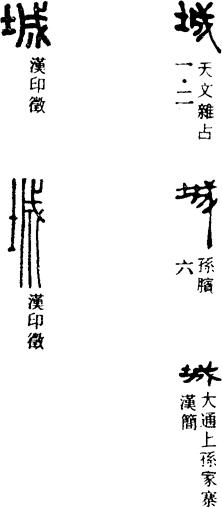 城
天文雜占
一·二
城
孫臏
六
城
大通上孫家寨
漢簡
城
漢印徵
城
漢印徵